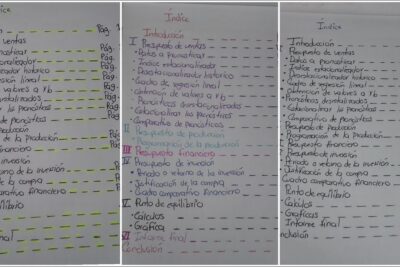 ice
Pág.
ventas
Pág.
pronosticar
Pág.
estacionalizador
Pág.
histórico
Pág.
regresión lineal
Pág.
de valores a y b
Pág.
Pág.
pronósticos
producción
Pág.
de la producción
Pág.
financiero
inversión
de la inversión
de la compra
financiero
equilibrio
final
Índice
Introducción
I Presupuesto de ventas
• Datos a pronosticar
• Índice estacionalizador
• Desestacionalizador histórico
• Cuadro de regresión lineal
• Obtención de valores a y b
• Pronósticos desestacionalizados
• Estacionalizar los pronósticos
• Comparativo de pronósticos
II Presupuesto de producción
• Programación de la producción
III Presupuesto financiero
IV Presupuesto de inversión
• Período o retorno de la inversión
• Justificación de la compra
• Cuadro comparativo financiero
V Punto de equilibrio
• Cálculos
• Gráfica
VI Informe final
Conclusión
Índice
Introducción
Presupuesto de ventas
• Datos a pronosticar
• Índice estacionalizador
• Desestacionalizador histórico
• Cuadro de regresión lineal
• Obtención de valores a y b
• Pronósticos
• Estacionalizar los pronósticos
• Comparativo de pronósticos
Presupuesto de producción
Programación de la producción
Presupuesto financiero
Presupuesto de inversión
retorno de la inversión
Justificación de la compra
Cuadro comparativo financiero
Punto de equilibrio
• Cálculos
• Gráficas
Informe final
Conclusión